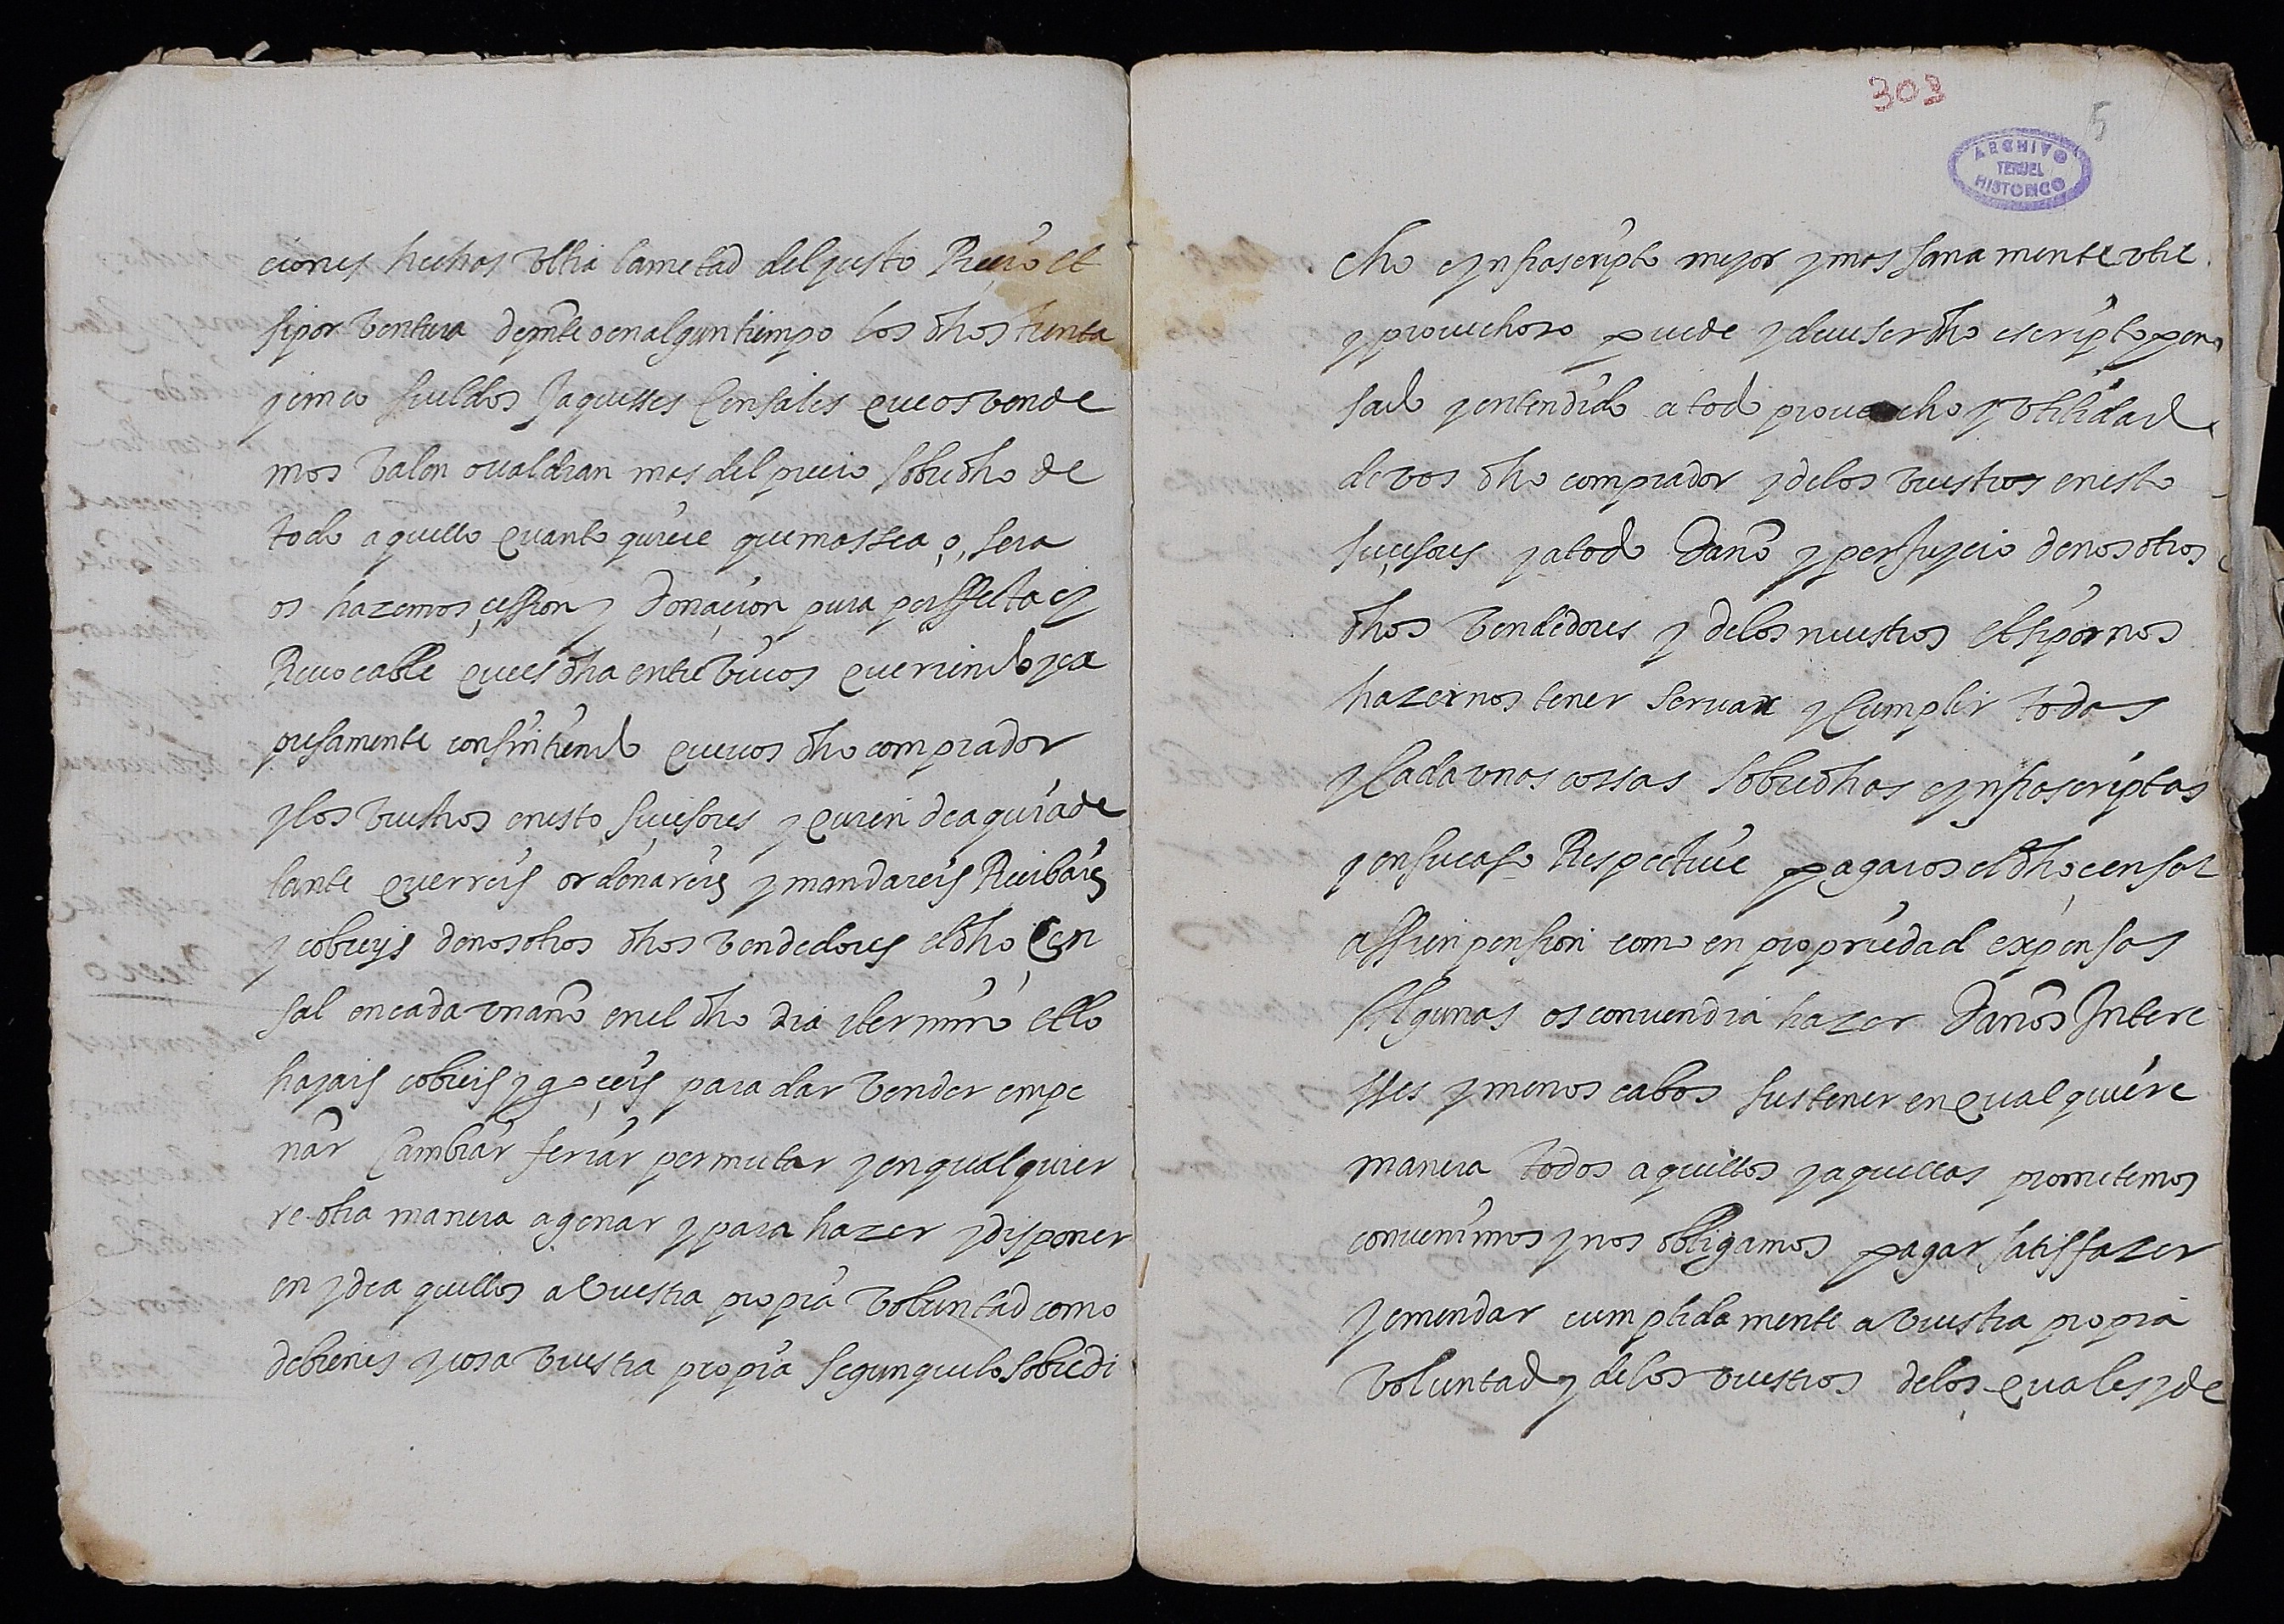 ciones hechas vltra lametad deljusto Precio et
sipor ventura depnte oenalgun tiempo los dhos trenta
ycinco sueldos Jaquesses Censales queos vende
mos valen ovaldran mas del precio sobredho de
todo aquello quanto quiere quemassea o, sera
os hazemos çession y Donaçion pura perffecta ey
Reuocable quees dha entre viuos queriendo yex
presamente consintiendo queuos dho comprador
ylos vuestros enesto suçesores y quien deaquiade
lante querreis ordenareis y mandareis Reçibais
y cobreys denosotros dhos vendedores eldho Çen
sal encada vnaño enel dho dia itermino etlo
hayais cobreis y goçeis para dar vender empe
ñar Cambiar feriar permutar yenqualquier
re otra manera agenar y para hazer ydisponer
en ydea quellos a Vuestra propia Voluntad como
debienes ycosa vuestra propia segunquelo sobredi
303
5
ARCHIVO
TERUEL
HISTORICO
cho eynfrascripto mejor ymas sana mente vtil
y prouechoso puede ydeueser dho escripto pen
sado yentendido a todo prouecho y vtilidad
de vos dho comprador ydelos vuestros enesto
suçesores yatodo Daño y perjuyçio denosotros
dhos vendedores y delos nuestros etsipornos
hazernos tener seruar yCumplir todas
yCadavnas cossas sobredhas eynfrascriptas
yensucaso Respectiue pagaros eldho çensal
assien pension como en propriedad expensas
Algunas osconuendra hazer Daños Intere
sses ymenos cabos sustener enqualquiere
manera todos aquellos yaquellas prometemos
conuenimos ynos obligamos pagar satisfazer
yemendar cumplida mente a vuestra propia
voluntad y delos vuestros delos quales yde